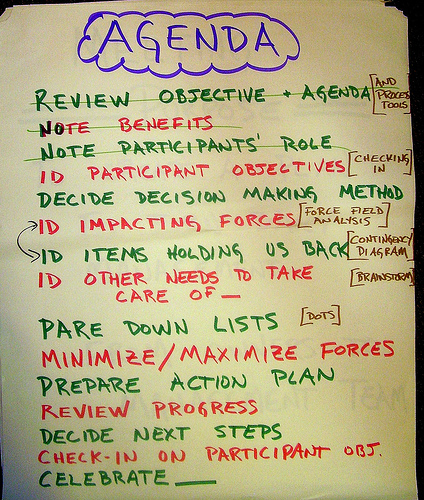 AGENDA
REVIEW OBJECTIVE + AGENDA [AND PROCESS TOOLS]
NOTE BENEFITS
NOTE PARTICIPANTS' ROLE
ID PARTICIPANT OBJECTIVES [CHECKING IN]
DECIDE DECISION MAKING METHOD
ID IMPACTING FORCES [FORCE FIELD ANALYSIS]
ID ITEMS HOLDING US BACK [CONTINGENCY DIAGRAM]
ID OTHER NEEDS TO TAKE [BRAINSTORM]
CARE OF _
PARE DOWN LISTS [DOTS]
MINIMIZE/MAXIMIZE FORCES
PREPARE ACTION PLAN
REVIEW PROGRESS
DECIDE NEXT STEPS
CHECK-IN ON PARTICIPANT OBJ.
CELEBRATE __